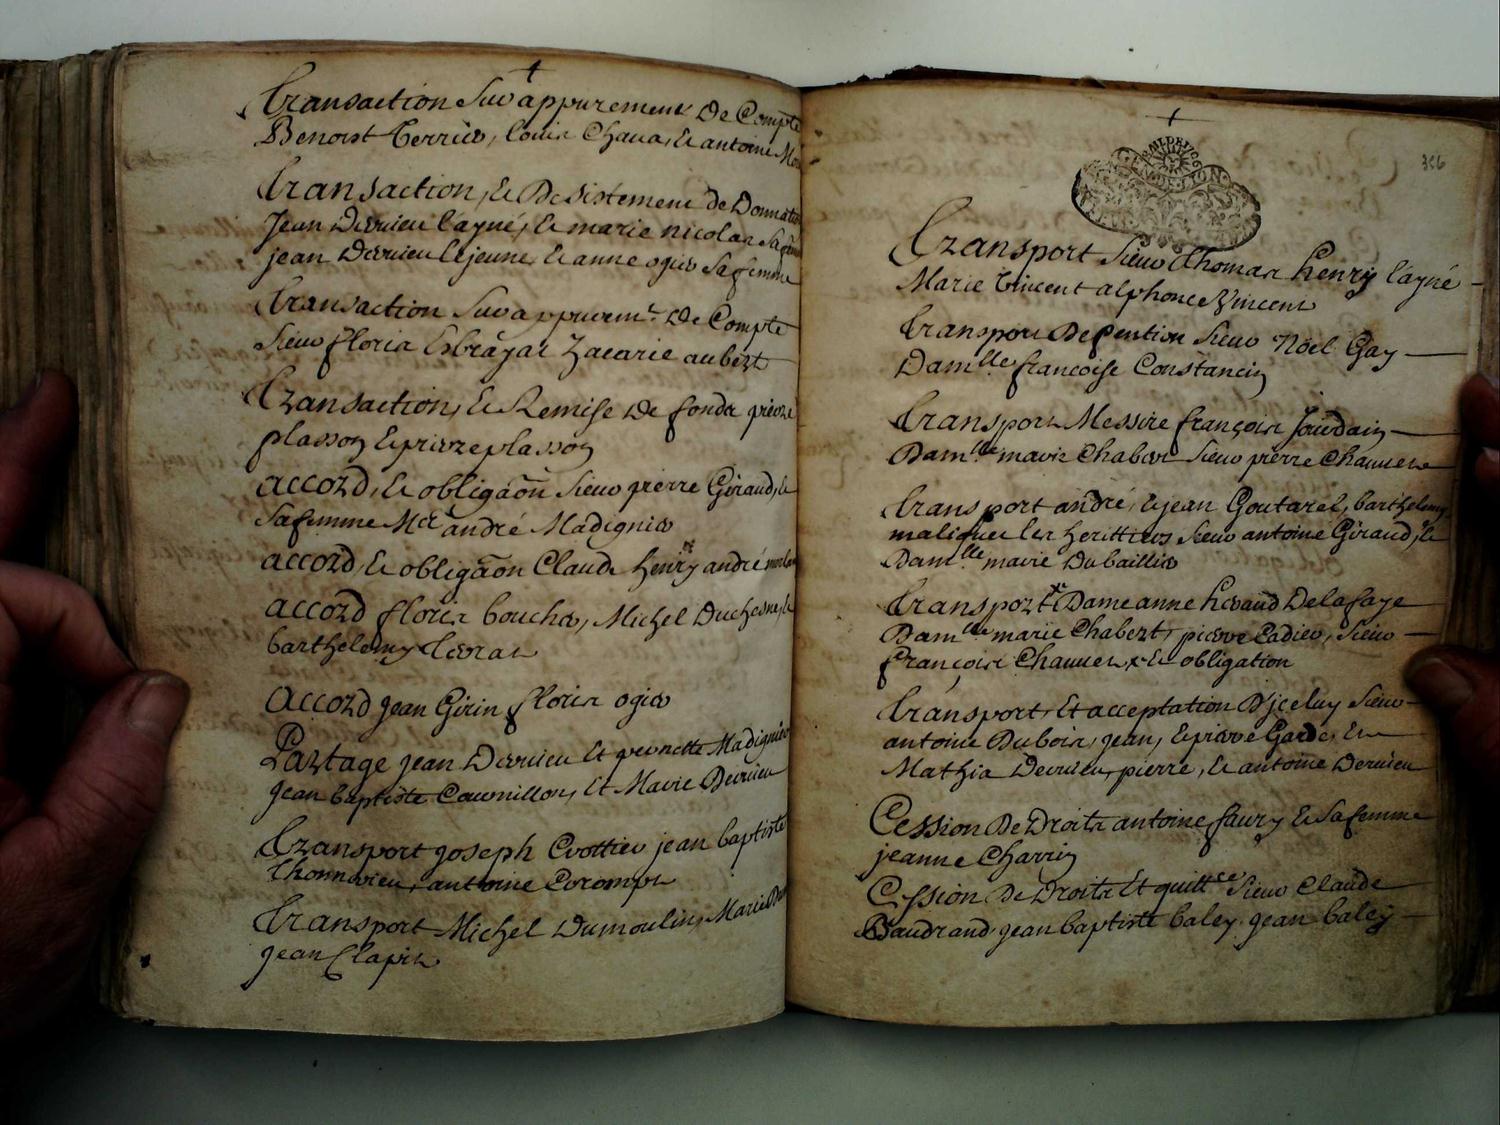 Transaction Sur appurement De Compte
Benoist Terrier, Louis Chaua, Et antoine
Transaction, Et De Sistement de Donnation
Jean Dervieu l'ayné, Et marie nicolas Sa femme
jean Dervieu le jeune, Et anne ogier Sa femme
Transaction Sur appurem.t De Compte
Sieur floris Esbrayat Zacarie aubert
Transaction, Et Remise De fonds pierre
plasson Et pierre plasson
accord, Et obligaôn Sieur pierre Giraud, Et
Sa femme M.re andré Madignier
accord, Et obligaôn Claude henry andré
accord floris boucher, Michel Duchesne, Et
barthelemy
accord Jean Girin floris ogier
Partage jean Dervieu Et pernette Madignier
jean baptiste Cournillon, Et Marie Dervieu
Transport joseph Crottier jean baptiste
Thonnerieu, antoine Corompt
Transport Michel Dumoulin, Marie
jean Clapis
356
Transport Sieur Thomas henry l'ayné
Marie Vincent alphonce Vincent
Transport De pention Sieur Nöel Gay
Dam.lle françoise Constancin
Transport Messire françois Jourdain
Dam.lle marie Chabert Sieur pierre Chauuet
Transport andré, Et jean Goutarel, barthelemy
Les herittiers Sieur antoine Giraud, Et
Dam.lle marie Dubaillier
Transport Dame anne heraud Delafaye
Dam.lle marie Chabert, pierre Cadier, Sieur
françois Chauuet Et obligation
Transport, Et acceptation D'jceluy Sieur
antoine Dubois, jean, Et pierre Garde, Et
Mathia Dervieu, pierre, Et antoine Dervieu
Cession De Droits antoine faury Et Sa femme
jeanne Charrin
Cession De Droits Et quitt.ce Sieur Claude
Baudrand jean baptiste baley jean baley